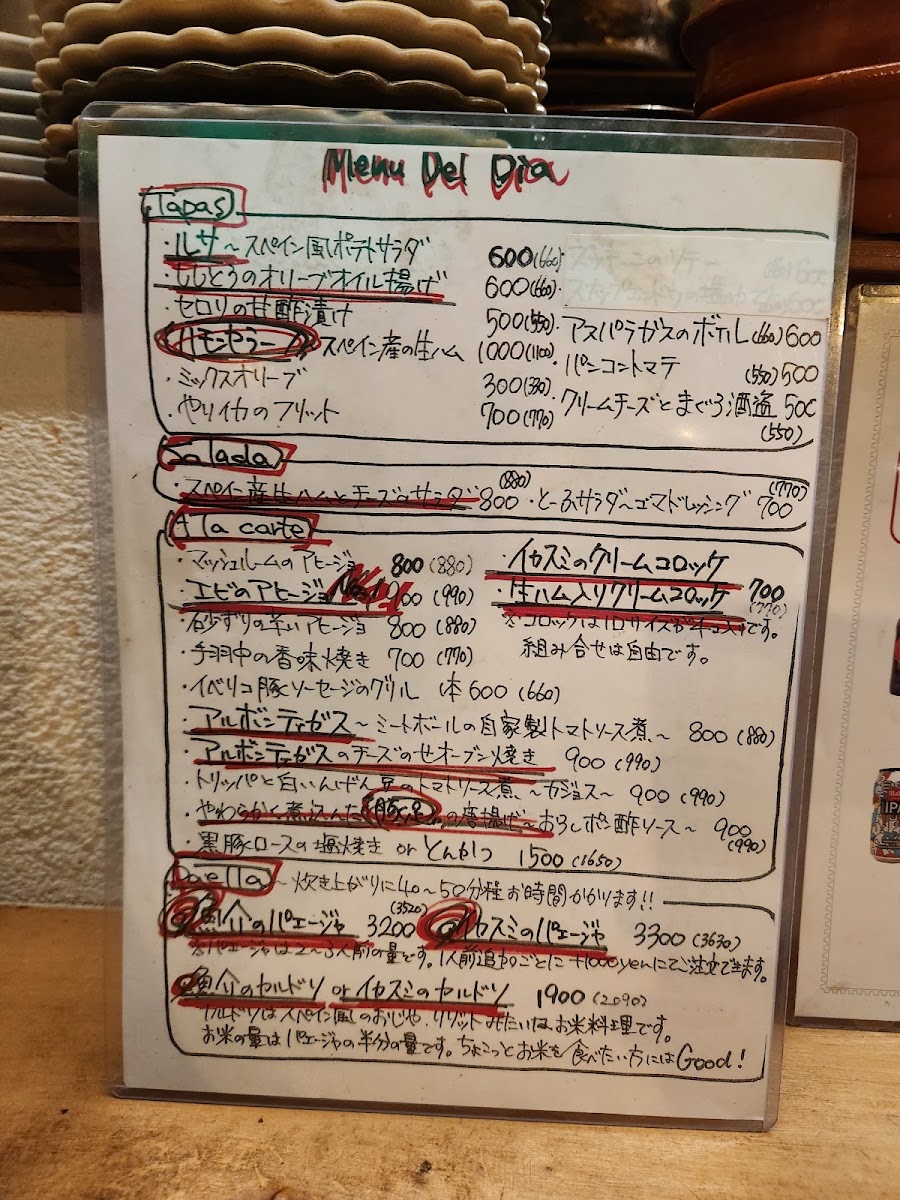 Menu Del Dia
Tapas
・ルサ～スペイン風ポテトサラダ 600(660)
・ししとうのオリーブオイル揚げ 600(660)
・セロリの甘酢漬け 500(550)
ハモンセラーノ スペイン産の生ハム 1000(1100)
・ミックスオリーブ 300(330)
・やりイカのフリット 700(770)
・アスパラガスのボイル(660)600
・パンコントマテ (550)500
・クリームチーズとまぐろ酒盗 500
(550)
Salada
・スペイン産生ハムとチーズのサラダ 800(880)・とーふサラダ～ゴマドレッシング 700(770)
A la carte
・マッシュルームのアヒージョ 800(880)
・エビのアヒージョ No.1 900(990)
・砂ずりの辛いアヒージョ 800(880)
・手羽中の香味焼き 700(770)
・イベリコ豚ソーセージのグリル 1本600(660)
・イカスミのクリームコロッケ
・生ハム入りクリームコロッケ 700
(770)
※コロッケは1口サイズが4コ入りです。
組み合せは自由です。
・アルボンディガス～ミートボールの自家製トマトソース煮～ 800(880)
・アルボンディガスのチーズのせオーブン焼き 900(990)
・トリッパと白いんげん豆のトマトソース煮～カジョス～ 900(990)
・やわらかく煮込んだ豚足の唐揚げ～おろしポン酢ソース～ 900
(990)
・黒豚ロースの塩焼き or とんかつ 1500(1650)
Paella～炊き上がりに40～50分程お時間かかります!!
魚介のパエージャ 3200(3520) イカスミのパエージャ 3300(3630)
※パエージャは2～3人前の量です。1人前追加ごとに+1000yenにてご注文できます。
魚介のカルドソ or イカスミのカルドソ 1900(2090)
カルドソはスペイン風のおじや、リゾットみたいなお米料理です。
お米の量はパエージャの半分の量です。ちょこっとお米を食べたい方にはGood!